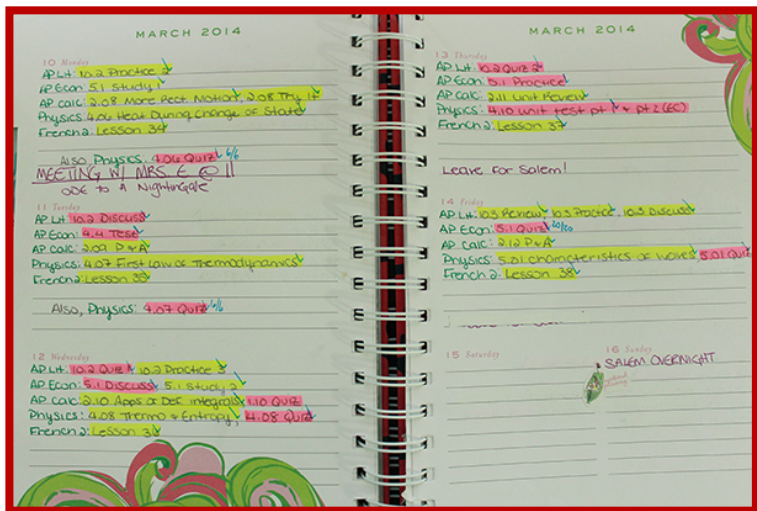 MARCH 2014
10 Monday
AP Lit: 10.2 Practice 2
AP Econ: 5.1 Study 1
AP Calc: 2.08 More Rect. Motion, 2.08 Try It
Physics: 4.06 Heat During Change of State
French 2: Lesson 34
Also, Physics: 4.06 Quiz 6/6
MEETING W/ MRS. E @ 11
ODE TO A NIGHTINGALE
11 Tuesday
AP Lit: 10.2 Discuss
AP Econ: 4.4 Test
AP Calc: 2.09 P & A
Physics: 4.07 First Law of Thermodynamics
French 2: Lesson 35
Also, Physics: 4.07 Quiz 6/6
12 Wednesday
AP Lit: 10.2 Quiz 1, 10.2 Practice 3
AP Econ: 5.1 Discuss, 5.1 Study 2
AP Calc: 2.10 Apps of Def. Integrals, 1.10 Quiz
Physics: 4.08 Thermo & Entropy, 4.08 Quiz
French 2: Lesson 36
MARCH 2014
13 Thursday
AP Lit: 10.2 Quiz 2
AP Econ: 5.1 Practice
AP Calc: 2.11 Unit Review
Physics: 4.10 Unit Test pt 1 & pt 2 (EC)
French 2: Lesson 37
Leave for Salem!
14 Friday
AP Lit: 10.3 Review, 10.3 Practice, 10.3 Discuss
AP Econ: 5.1 Quiz 20/20
AP Calc: 2.12 P & A
Physics: 5.01 Characteristics of Waves, 5.01 Quiz
French 2: Lesson 38
15 Saturday
16 Sunday
SALEM OVERNIGHT